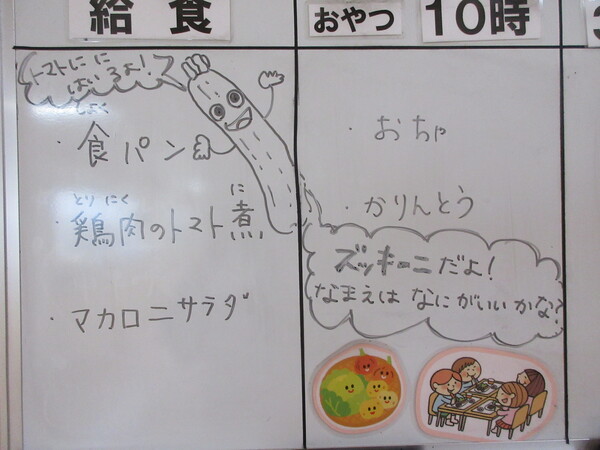 給食
トマトにに
はいるよ!
しょく
・食パン
とりにく に
・鶏肉のトマト煮
・マカロニサラダ
おやつ 10時
・おちゃ
・かりんとう
ズッキーニだよ!
なまえは なにがいいかな?